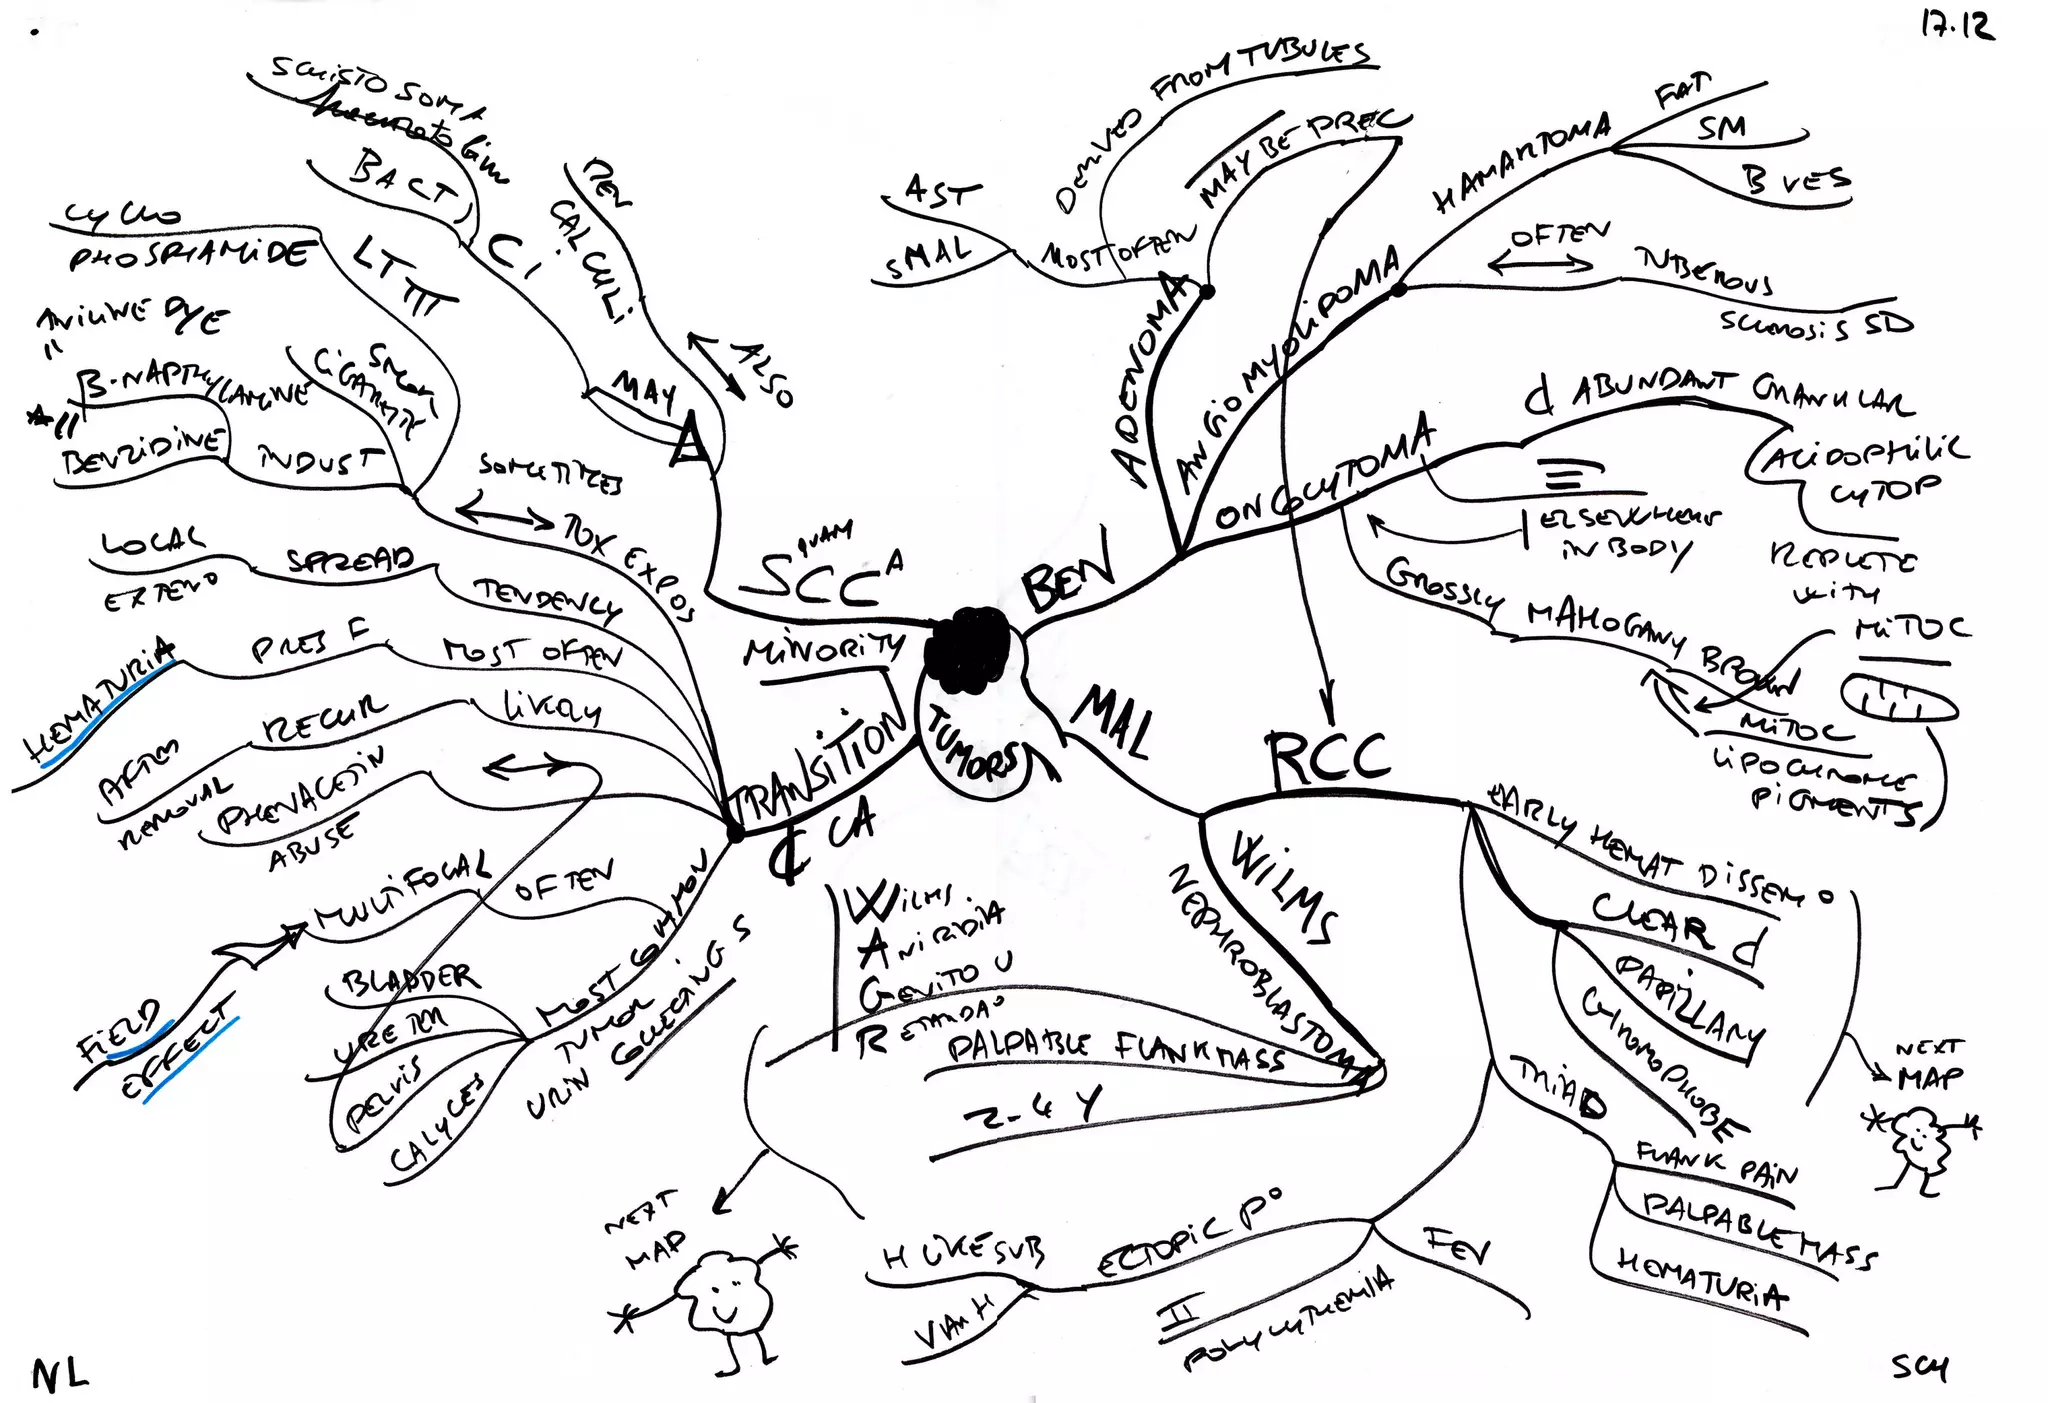 17.12
SCHISTO SOMA
BACT
CI
REN
CALCULI
CYCLO
PHOSPHAMIDE
LT
ANILINE DYE
B-NAPTHYLAMINE
SMOKE
CIGARETTE
BENZIDINE
INDUST
MAY
ALSO
A
SOMETIMES
TOX EXPOS
LOCAL
EXTEND
SPREAD
TENDENCY
SQUAM
SCCA
MINORITY
HEMATURIA
PRES F
MOST OFTEN
RECUR
LIKELY
AFTER
REMOVAL
PHENACETIN
ABUSE
TRANSITION
CA
MULTIFOCAL
OFTEN
FIELD
EFFECT
MOST COMMON
TUMOR
URIN COLLECTING S
BLADDER
URETER
PELVIS
CALYCES
TUMORS
BEN
ADENOMA
MOST OFTEN
AST
SMAL
DERIVED FROM TUBULES
MAY BE PREC
ANGIOMYOLIPOMA
HAMARTOMA
FAT
SM
B VES
OFTEN
TUBEROUS
SCLEROSIS SD
ONCOCYTOMA
ABUNDANT GRANULAR
ACIDOPHILIC
CYTOP
REPLETE
WITH
MITOC
ELSEWHERE
IN BODY
GROSSLY
MAHOGANY BROWN
MITOC
LIPOCHROME
PIGMENTS
MAL
RCC
EARLY HEMAT DISSEM
CLEAR
PAPILLARY
CHROMOPHOBE
NEXT
MAP
TRIAD
FLANK PAIN
PALPABLE MASS
HEMATURIA
WILMS
NEPHROBLASTOMA
WILMS
ANIRIDIA
GENITO U
RETARDA°
PALPABLE FLANK MASS
2-4 Y
NEXT
MAP
ECTOPIC P°
H LIKE SUB
II
POLYCYTHEMIA
FEV
NL